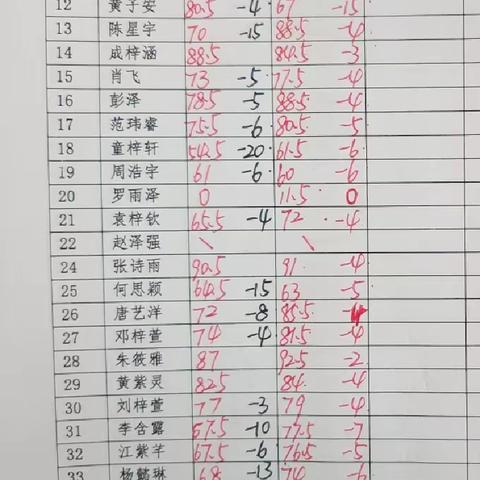 12 黄子安 80.5 -4 67 -15
13 陈星宇 70 -15 88.5 -4
14 成梓涵 88.5 84.5 -3
15 肖飞 73 -5 77.5 -4
16 彭泽 78.5 -5 88.5 -4
17 范玮睿 75.5 -6 80.5 -5
18 童梓轩 54.5 -20 61.5 -6
19 周浩宇 61 -6 60 -6
20 罗雨泽 0 11.5 0
21 袁梓钦 65.5 -4 72 -4
22 赵泽强 \ \
24 张诗雨 90.5 91 -4
25 何思颖 64.5 -15 63 -5
26 唐艺洋 72 -8 85.5 -4
27 邓梓萱 74 -4 81.5 -4
28 朱筱雅 87 92.5 -2
29 黄紫灵 82.5 84 -4
30 刘梓萱 77 -3 79 -4
31 李含露 57.5 -10 77.5 -7
32 江紫芊 67.5 -6 76.5 -5
33 杨懿琳 68 -13 74 -6